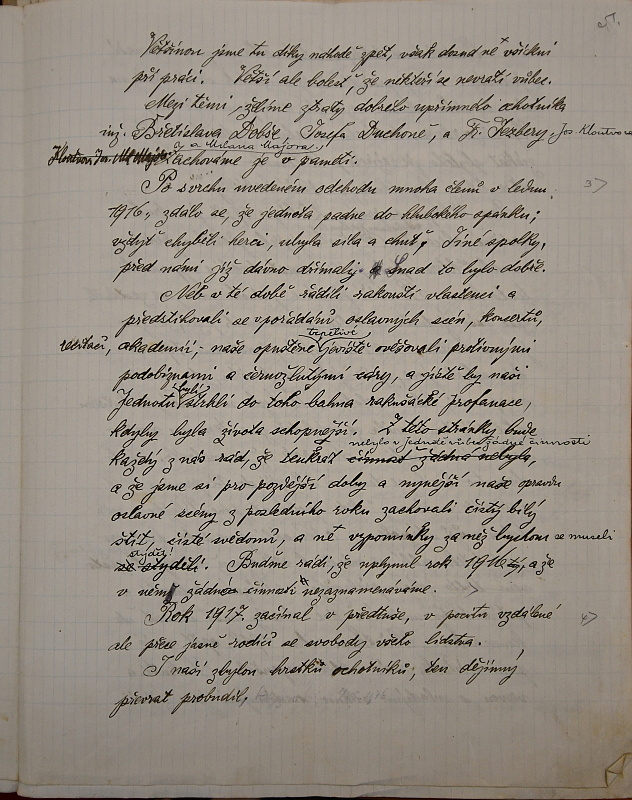 57.
Většinou jsme tu díky náhodě zpět, však dosud ne všichni
při práci. Větší ale bolest, že někteří se nevrátí vůbec.
Mezi těmi, želíme ztráty dobrého upřímného ochotníka
inž. Břetislava Dobše, Josefa Duchoně, a Fr. Jezbery, Jos. Kloutvora
a Milana Majora.
Zachováme je v paměti.
Po svrchu uvedeném odchodu mnoha členů v lednu
3>
1916, zdálo se, že jednota padne do hlubokého spánku;
vždyť chyběli herci, ubyla síla a chuť, Jiné spolky,
před námi již dávno dřímaly. Snad to bylo dobře.
Neb v té době řádili rakouští vlastenci a
předstihovali se v pořádání oslavných scén, koncertů,
recitací, akademií, - naše opuštěné trpělivé jeviště ověšovali protivnými
podobiznami a černožlutými cáry, a jistě by naši
Jednotu byli strhli do toho bahna rakušácké profanace,
kdyby byla života schopnější. Z této stránky bude
nebylo v Jednotě vůbec žádné činnosti
každý z nás rád, že tenkrát činnost žádná nebyla,
a že jsme si pro pozdější doby a nynější naše opravdu
oslavné scény z posledního roku zachovali čistý bílý
štít, čisté svědomí, a ne vzpomínky za něž bychom se museli
styděti!
se styděli. Buďme rádi, že uplynul rok 1916tý, a že
v něm žádné činnosti nezaznamenáváme.
Rok 1917. začínal v předtuše, v pocitu vzdálené
4>
ale přece jasně rodící se svobody všeho lidstva.
I naši zbylou hrstku ochotníků, ten dějinný
převrat probudil,